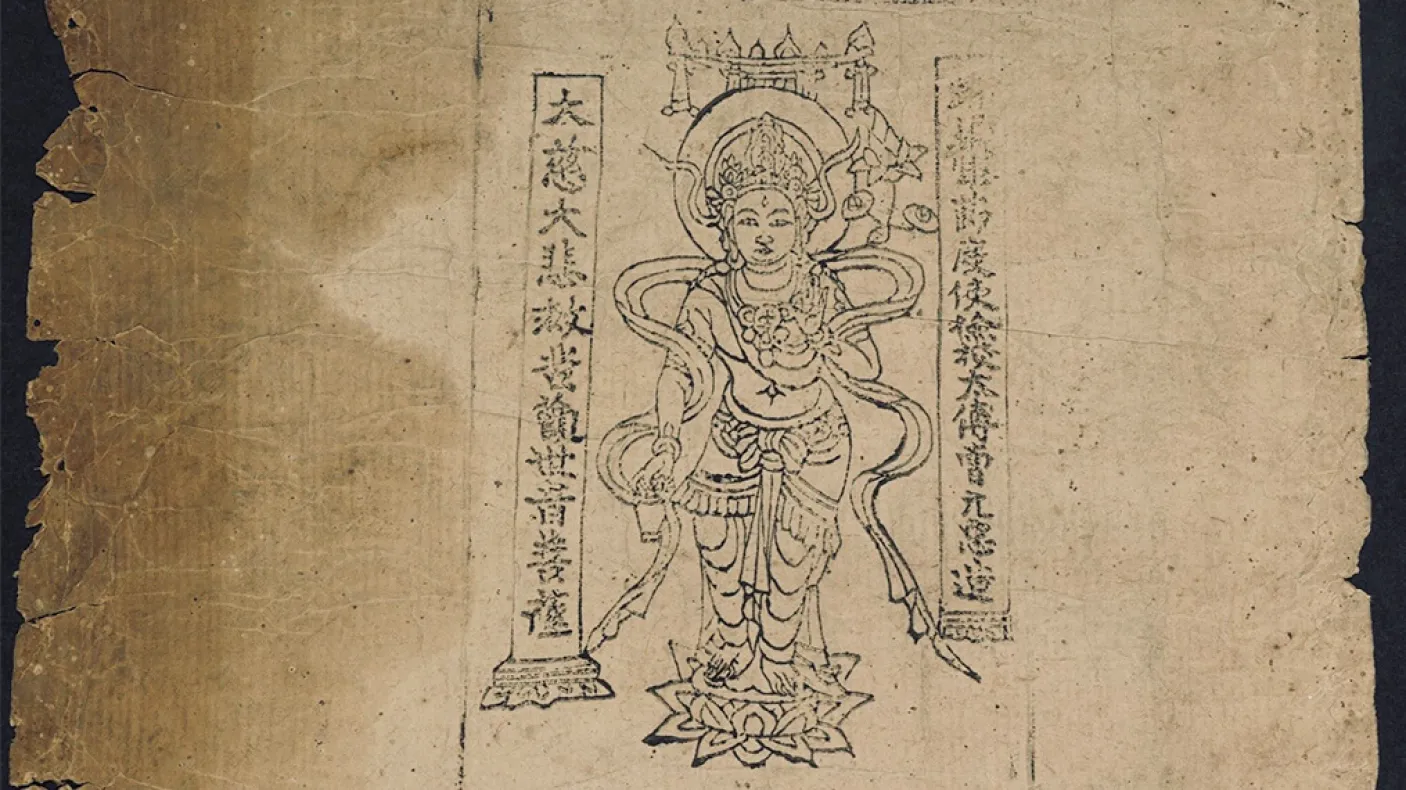 軍節度使檢校太傅曹元忠造
大慈大悲救苦觀世音菩薩